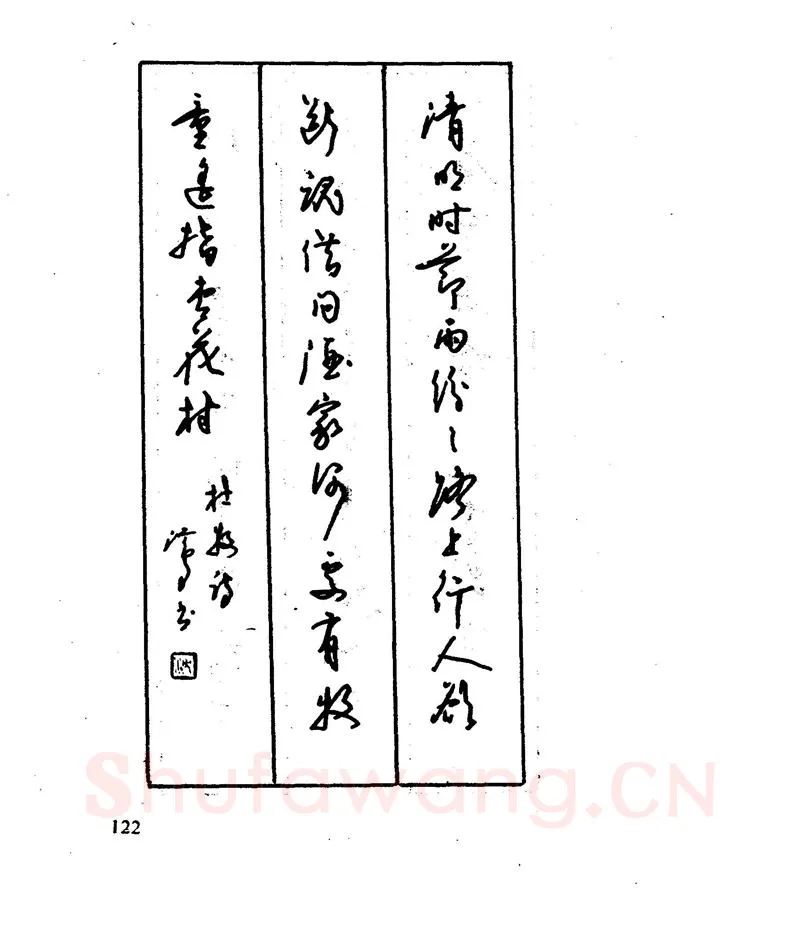 清明时节雨纷々路上行人欲
断魂借问酒家何处有牧
童遥指杏花村
杜牧诗
书
122
Shufawang.CN